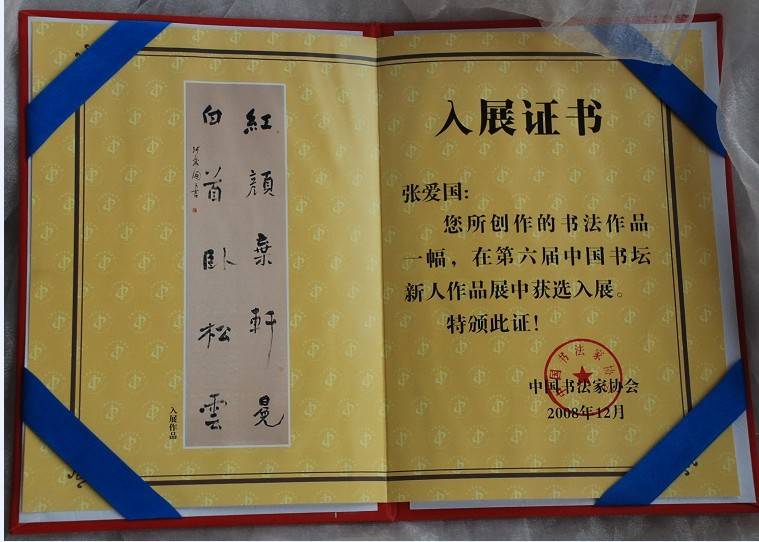 紅顏棄軒冕
白首臥松雲
入展作品
入展证书
张爱国:
您所创作的书法作品
一幅，在第六届中国书坛
新人作品展中获选入展。
特颁此证!
中国书法家协会
2008年12月
中国书法家协会